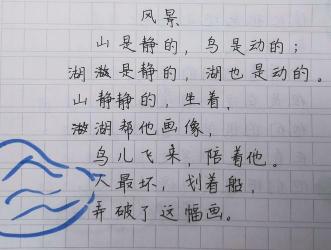 风景
山是静的，鸟是动的；
湖是静的，湖也是动的。
山静静的，坐着，
湖帮他画像，
鸟儿飞来，陪着他。
人最坏，划着船，
弄破了这幅画。